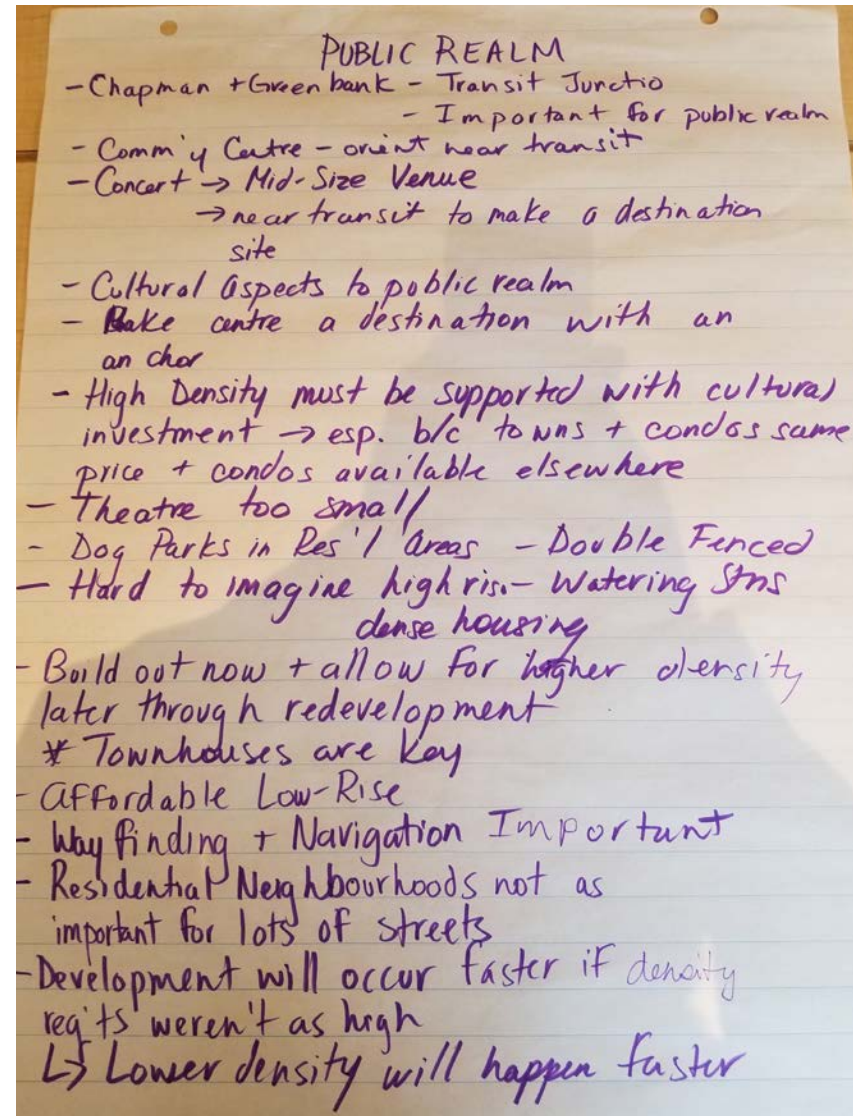 PUBLIC REALM
- Chapman + Greenbank - Transit Junctio
- Important for public realm
- Comm'y Centre - orient near transit
- Concert → Mid-Size Venue
→ near transit to make a destination
site
- Cultural Aspects to public realm
- Make centre a destination with an
anchor
- High Density must be supported with cultural
investment → esp. b/c towns + condos same
price + condos available elsewhere
- Theatre too small
- Dog Parks in Res'l Areas - Double Fenced
- Hard to imagine high ris. - Watering Stns
dense housing
- Build out now + allow for higher density
later through redevelopment
* Townhouses are Key
- Affordable Low-Rise
- Wayfinding + Navigation Important
- Residential Neighbourhoods not as
important for lots of streets
- Development will occur faster if density
req'ts weren't as high
↳ Lower density will happen faster